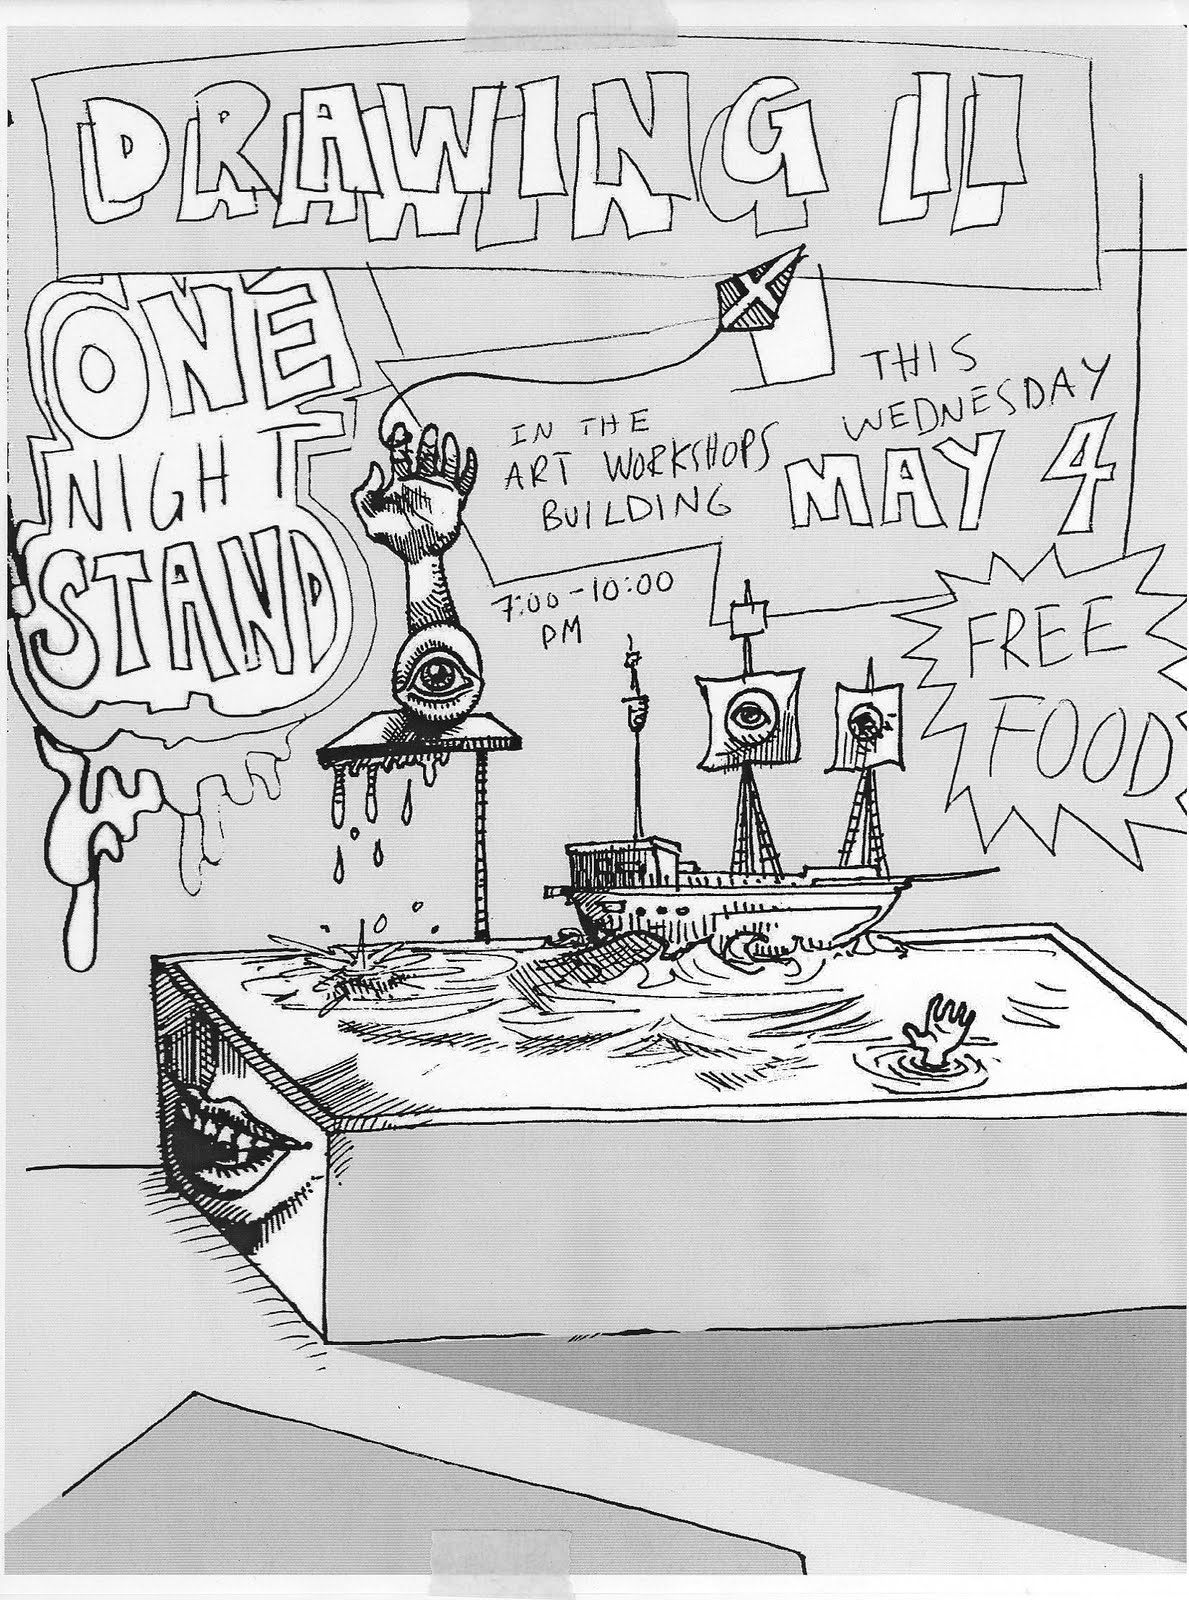 DRAWING II
ONE
NIGHT
STAND
IN THE
ART WORKSHOPS
BUILDING
7:00-10:00
PM
THIS
WEDNESDAY
MAY 4
FREE
FOOD